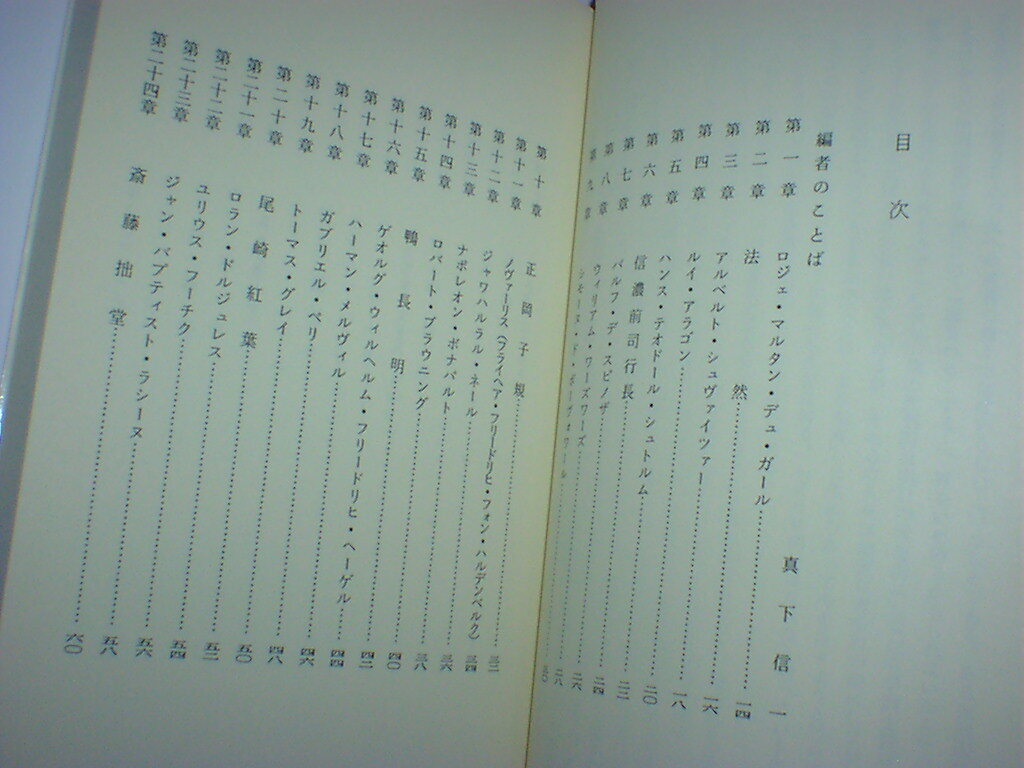 目次
編者のことば 真下信一
第一章 ロジェ・マルタン・デュ・ガール……一四
第二章 法然……一六
第三章 アルベルト・シュヴァイツァー……一八
第四章 ルイ・アラゴン……二〇
第五章 ハンス・テオドール・シュトルム……二二
第六章 信濃前司行長……二四
第七章 バルフ・デ・スピノザ……二六
第八章 ウィリアム・ワーズワーズ……二八
第九章 シモーヌ・ド・ボーヴォワール……三〇
第十章 正岡子規……三二
第十一章 ノヴァーリス(フライヘア・フリードリヒ・フォン・ハルデンベルク)……三四
第十二章 ジャワハルラル・ネール……三六
第十三章 ナポレオン・ボナパルト……三八
第十四章 ロバート・ブラウニング……四〇
第十五章 鴨長明……四二
第十六章 ゲオルグ・ウィルヘルム・フリードリヒ・ヘーゲル……四四
第十七章 ハーマン・メルヴィル……四六
第十八章 ガブリエル・ペリ……四八
第十九章 トーマス・グレイ……五〇
第二十章 尾崎紅葉……五二
第二十一章 ロラン・ドルジュレス……五四
第二十二章 ユリウス・フーチク……五六
第二十三章 ジャン・バプティスト・ラシーヌ……五八
第二十四章 斎藤拙堂……六〇